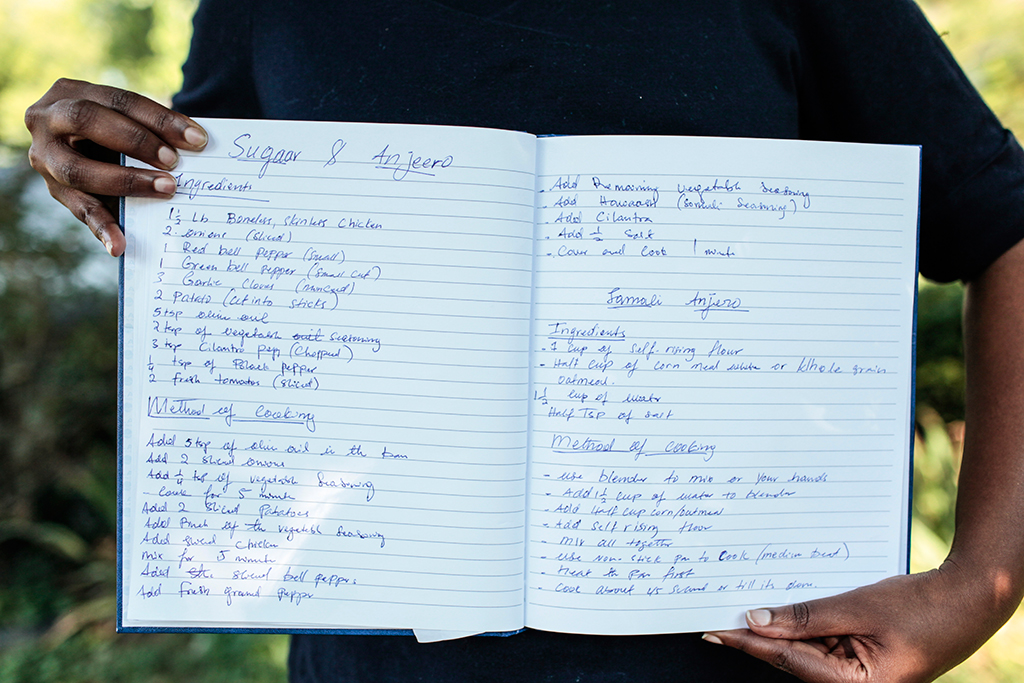 Sugaar & Anjeero
Ingredients
1½ Lb Boneless, skinless chicken
2 onions (sliced)
1 Red bell pepper (small)
1 Green bell pepper (small cut)
3 Garlic cloves (minced)
2 Patato (cut into sticks)
5 tsp olive oil
2 tsp of vegetable seasoning
3 tsp cilantro (chopped)
¼ tsp of Black pepper
2 fresh tomatoes (sliced)
Method of cooking
Add 5 tsp of olive oil in the
Add 2 sliced onions
Add ¼ tsp of vegetable seasoning
- Cook for 5 minute
Add 2 sliced Potatoes
Add Pinch of the vegetable seasoning
Add sliced chicken
mix for 5 minute
Add sliced bell peppers
Add fresh ground pepper
- Add Remaining vegetable seasoning
- Add Hawaash (Somali Seasoning)
- Add Cilantro
- Add ½ salt
- Cover and Cook 1 minute
Somali Anjero
Ingredients
- 1 cup of self-rising flour
- Half cup of corn meal white or Whole grain
oatmeal.
1½ cup of water
Half Tsp of salt
Method of cooking
- use blender to mix or your hands
- Add 1½ cup of water to blender
- Add Half cup corn/oatmeal
- Add self rising flour
- mix all together
- use non-stick pan to cook (medium heat)
- Heat the pan first
- Cook about 45 second or till its done.